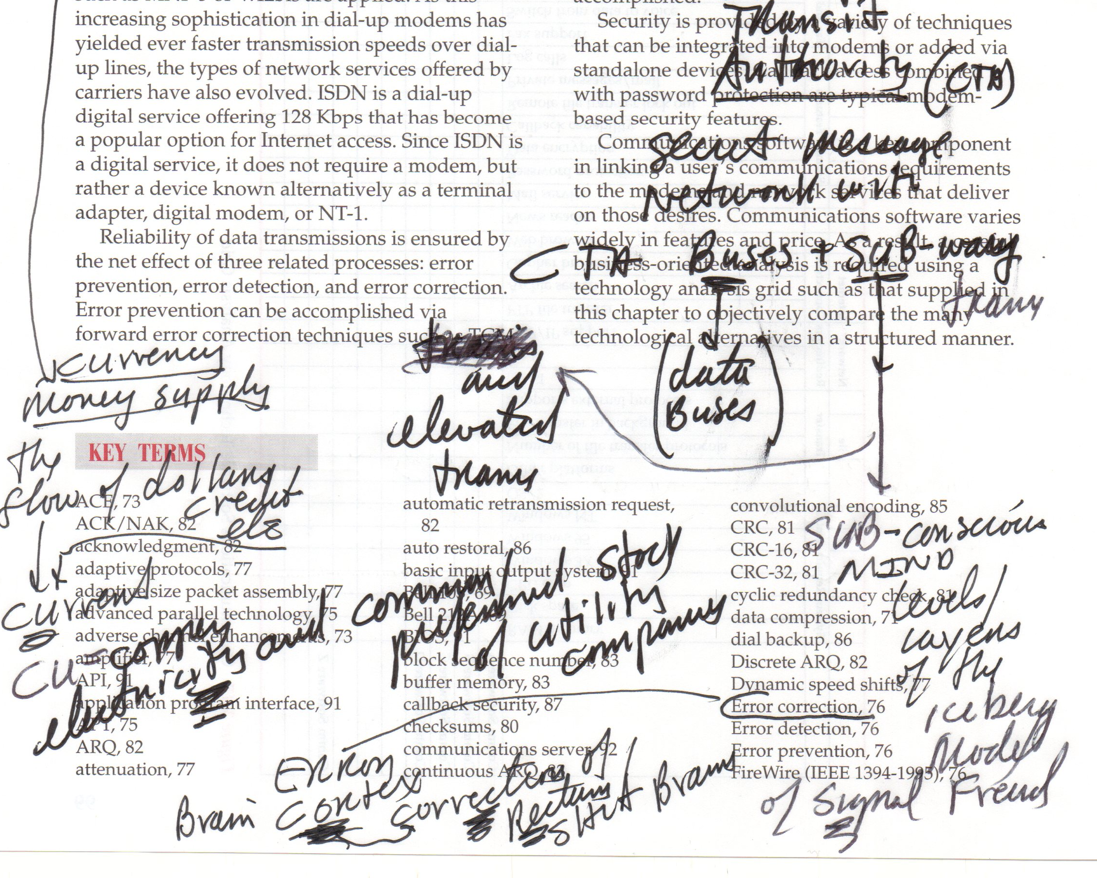 increasing sophistication in dial-up modems has
yielded ever faster transmission speeds over dial-
up lines, the types of network services offered by
carriers have also evolved. ISDN is a dial-up
digital service offering 128 Kbps that has become
a popular option for Internet access. Since ISDN is
a digital service, it does not require a modem, but
rather a device known alternatively as a terminal
adapter, digital modem, or NT-1.
Reliability of data transmissions is ensured by
the net effect of three related processes: error
prevention, error detection, and error correction.
Error prevention can be accomplished via
forward error correction techniques such as TCM
accomplished.
Security is provided by a variety of techniques
that can be integrated into modems or added via
standalone devices. Callback access combined
with password protection are typical modem-
based security features.
Communications software is a key component
in linking a user's communications requirements
to the modems and network services that deliver
on those desires. Communications software varies
widely in features and price. As a result, a careful
business-oriented analysis is required using a
technology analysis grid such as that supplied in
this chapter to objectively compare the many
technological alternatives in a structured manner.
Transit
Authority (CTA)
secret message
network with
CTA Buses + SUB-way
trams
(data
Buses)
and
elevated
trams
currency
money supply
the
flow of dollars
credit
etc
current
CU = copper
electricity and common/
preferred stock
of utility
companies
KEY TERMS
ACE, 73
ACK/NAK, 82
acknowledgment, 82
adaptive protocols, 77
adaptive size packet assembly, 77
advanced parallel technology, 75
adverse channel enhancements, 73
amplifier, 77
API, 91
application program interface, 91
APT, 75
ARQ, 82
attenuation, 77
automatic retransmission request,
82
auto restoral, 86
basic input output system, 91
BIOS, 91
block sequence number, 83
buffer memory, 83
callback security, 87
checksums, 80
communications server, 92
continuous ARQ, 83
convolutional encoding, 85
CRC, 81
CRC-16, 81
CRC-32, 81
cyclic redundancy check, 81
data compression, 77
dial backup, 86
Discrete ARQ, 82
Dynamic speed shifts, 77
Error correction, 76
Error detection, 76
Error prevention, 76
FireWire (IEEE 1394-1995), 76
SUB-conscious
MIND
levels/
layers
of the
iceberg
Model
of Signal Freud
ERROR
Brain Cortex Correction of
Rectum/
Shit Brains